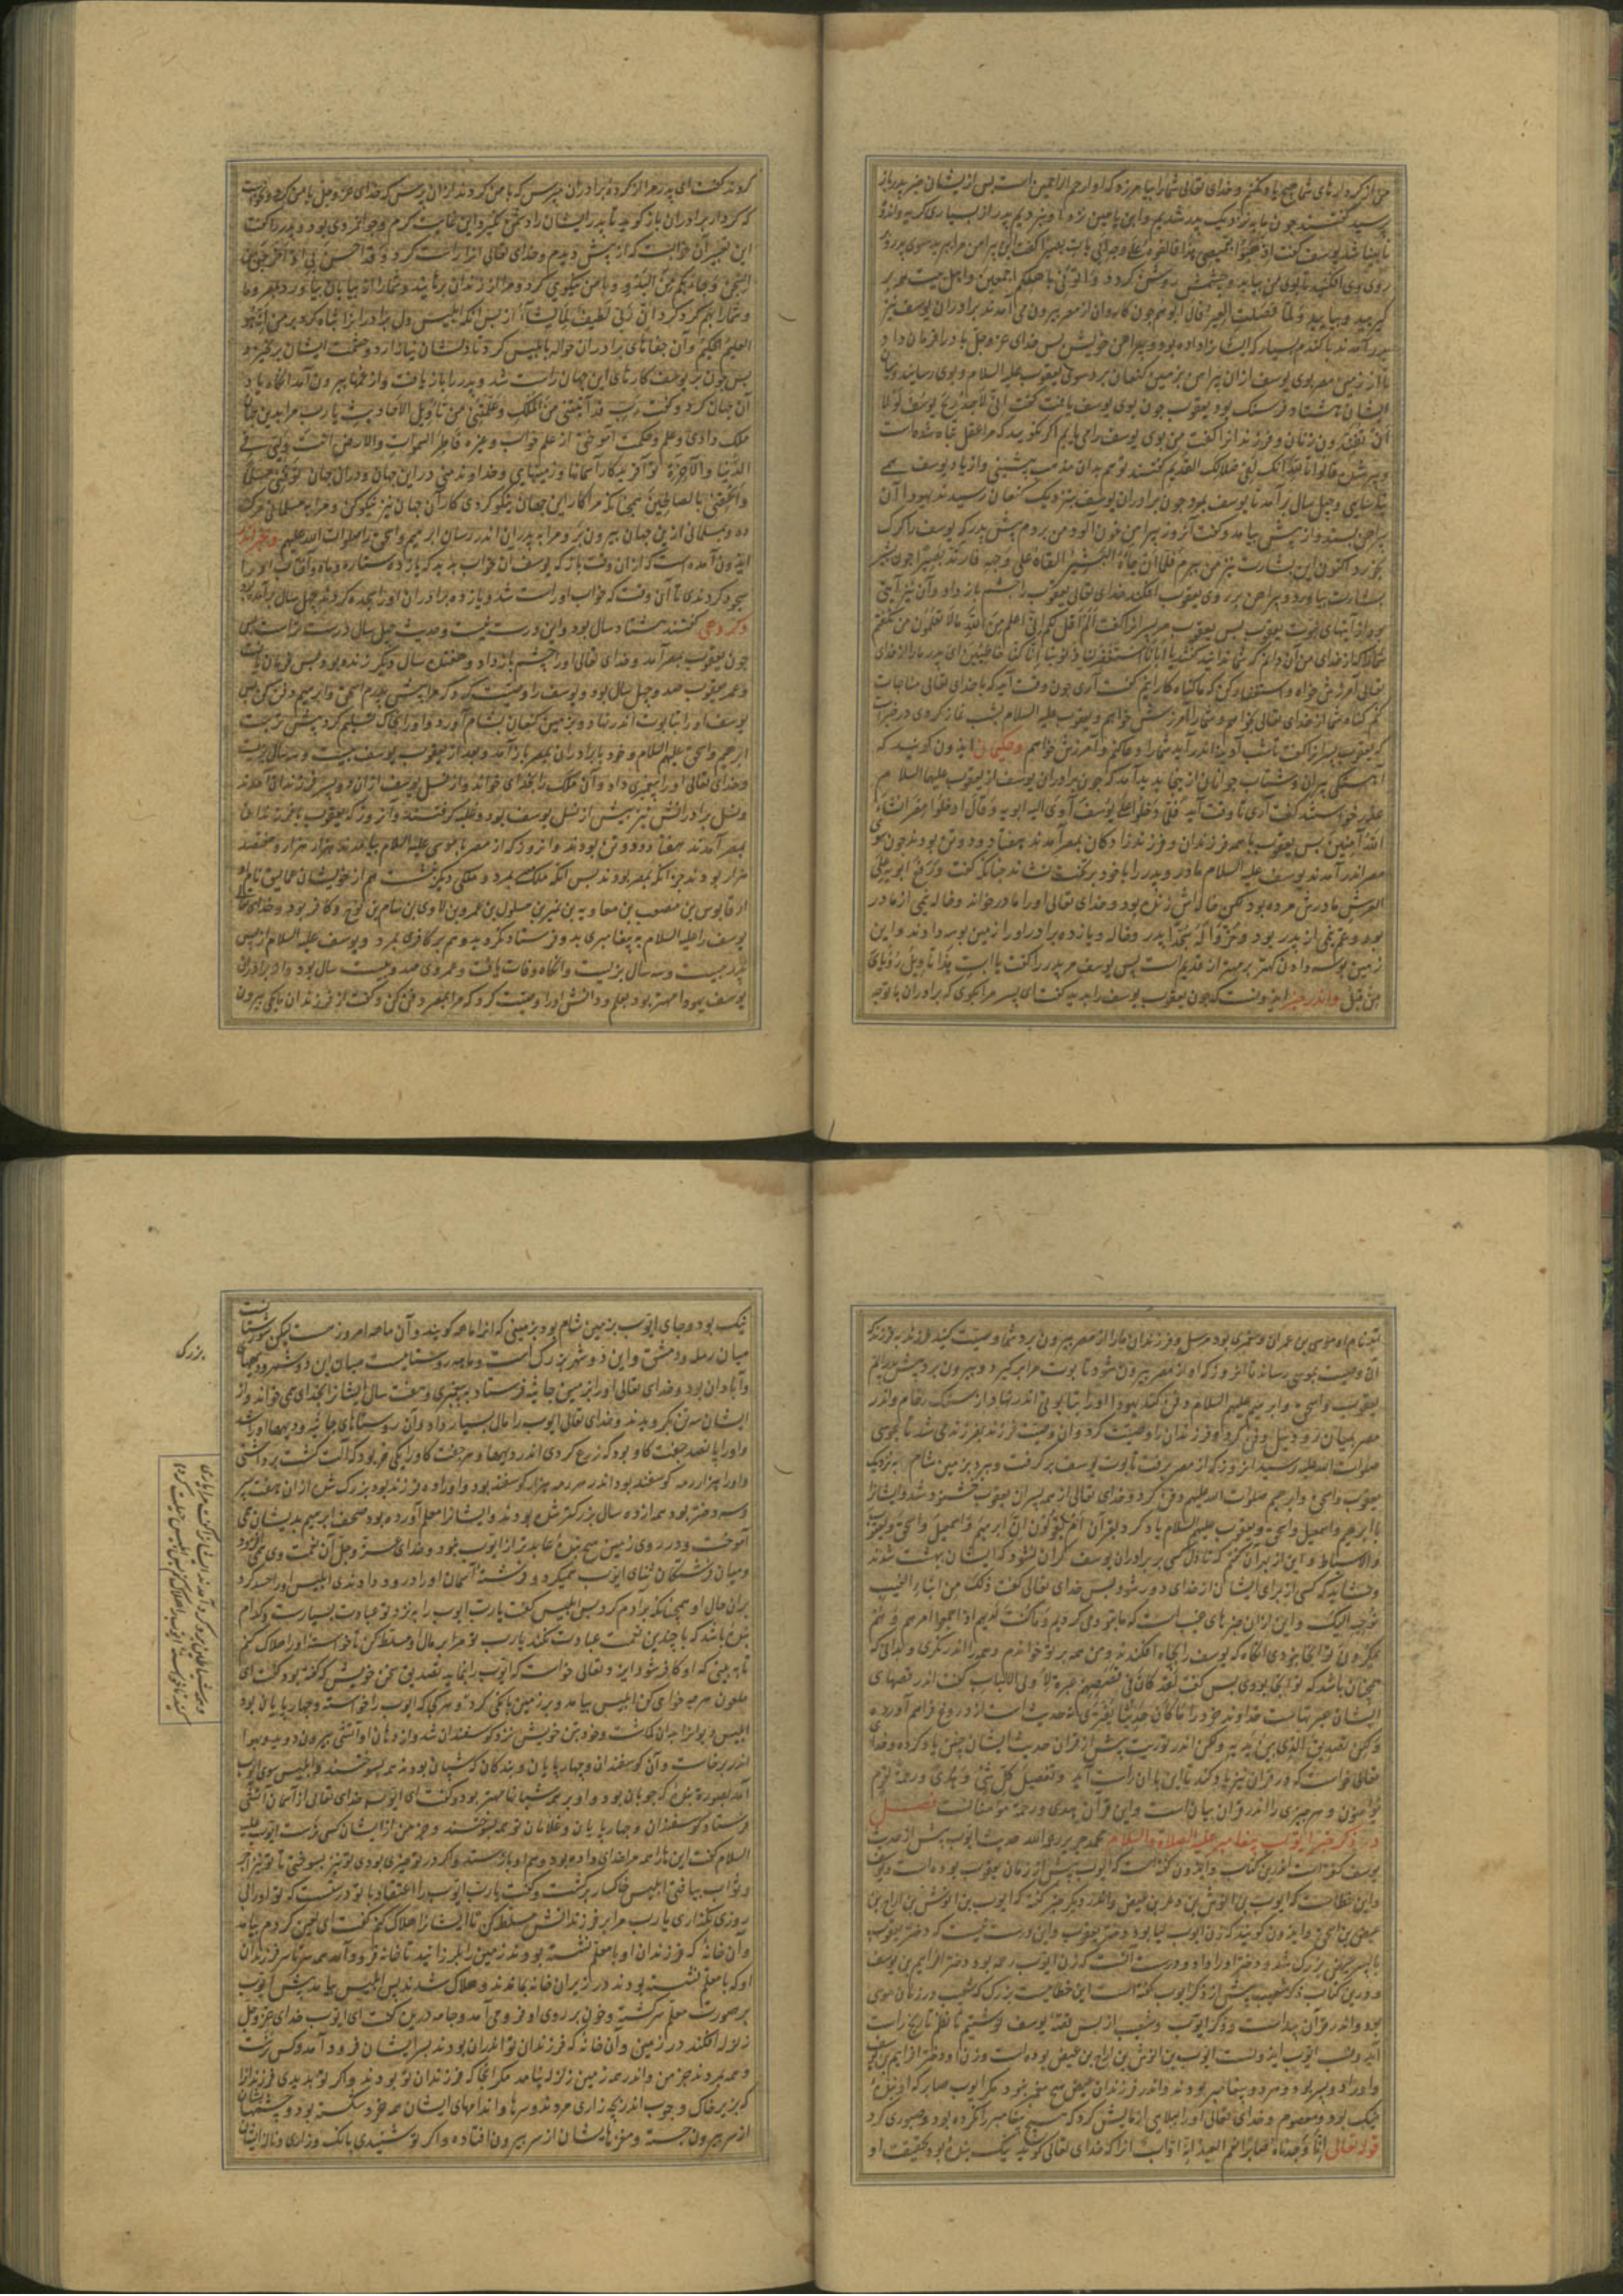 من از کردارهای شما هیچ یاد نکنم و خدای تعالی شما را بیامرزد که او ارحم الراحمین است پس از ایشان خبر پدر باز
پرسید گفتند چون ما بنزدیک پدر شدیم و ابن یامین نزد او نبردیم پدر از بسیاری گریه و اندوه
نابینا شد یوسف گفت اذهبوا بقمیصی هذا فالقوه علی وجه ابی یأت بصیرا گفت این پیراهن مرا ببرید سوی پدر و بر
روی وی افکنید تا بوی من بیابد و چشمش روشن گردد وأتونی باهلکم اجمعین و اهل بیت
گیرید و بیایید ولما فصلت العیر قال ابوهم چون کاروان از مصر بیرون می آمدند برادران یوسف نیز
بیرون آمدند با گندم بسیار که ایشان را داده بود و پیراهن خویش پس خدای عز و جل باد را فرمان داد
تا از زمین مصر بوی یوسف از آن پیراهن بزمین کنعان برد سوی یعقوب علیه السلام و بوی رسانید و میان
ایشان هشتاد فرسنگ بود یعقوب چون بوی یوسف یافت گفت انی لاجد ریح یوسف لولا
ان تفندون زنان و فرزندان را گفت من بوی یوسف را می یابم اگر نگویید که مرا عقل تباه شده است
قالوا تالله انک لفی ضلالک القدیم گفتند تو هم بدان مذهب پیشینی و از یاد یوسف همی
نیاسایی و چهل سال برآمد تا یوسف بمرد چون برادران یوسف بنزدیک کنعان رسیدند یهودا آن
پیراهن بستد و از پیش بیامد و گفت آن روز پیراهن خون آلود من بردم پیش پدر که یوسف را گرگ
بخورد اکنون این بشارت نیز من ببرم فلما ان جاء البشیر القاه علی وجهه فارتد بصیرا چون بشیر
بشارت بیاورد و پیراهن بر روی یعقوب افکند خدای تعالی یعقوب را چشم باز داد و آن نیز آیتی
بود از آیتهای نبوت یعقوب پس یعقوب مر پسران را گفت الم اقل لکم انی اعلم من الله ما لا تعلمون من نگفتم
شما را که از خدای من آن دانم که شما ندانید گفتند یا ابانا استغفر لنا ذنوبنا انا کنا خاطئین ای پدر ما را از خدای
تعالی آمرزش خواه و استغفار کن که ما گناه کاریم گفت آری چون وقت آید که با خدای تعالی مناجات
کنم گناه شما از خدای تعالی بخواهم و شما را آمرزش خواهم و یعقوب علیه السلام بشب نماز کردی
که یعقوب پسران را گفت تا شب آدینه اندر آید شما را دعا کنم و آمرزش خواهم و حکیمان ایدون گویند که
آهستگی پیران و شتاب جوانان از اینجا پدید آمد که چون برادران یوسف از یعقوب علیهما السلام
عذر خواستند گفت آری تا وقت آید فلما دخلوا علی یوسف آوی الیه ابویه وقال ادخلوا مصر ان شاء
الله آمنین پس یعقوب با همه فرزندان و فرزندزادگان بمصر آمدند هفتاد و دو تن بودند چون
مصر اندر آمدند یوسف علیه السلام مادر و پدر را با خود بر تخت نشاند چنانکه گفت ورفع ابویه علی
العرش مادرش مرده بود لکن خاله اش زنش بود و خدای تعالی او را مادر خواند و خاله یکی از مادر
بود و عم یکی از پدر بود وخروا له سجدا پدر و خاله و یازده برادر او را زمین بوسه دادند و این
زمین بوسه دادن کهتر بر مهتر از قدیم است پس یوسف مر پدر را گفت یا ابت هذا تاویل رؤیای
من قبل و اندر خبر ایدونست که چون یعقوب یوسف را بدید گفت ای پسر مرا بگوی که برادران با تو چه
کردند گفت ای پدر مرا از کرده برادران مپرس که با من کردند از آن پرس که خدای عز و جل با من کرد و نخواست
که کردار برادران باز گوید تا پدر ایشان را دشمن نگیرد این غایت کرم و جوانمردی بود و پدر را گفت
این تعبیر آن خوابست که از پیش دیدم و خدای تعالی آنرا راست کرد وقد احسن بی اذ اخرجنی من
السجن وجاء بکم من البدو و با من نیکویی کرد و مرا از زندان برهانید و شما را از بیابان بیاورد
و شما را بهم گرد کرد ان ربی لطیف لما یشاء از پس آنکه ابلیس دل برادران را تباه کرد بر من انه هو
العلیم الحکیم و آن جفاهای برادران حواله بابلیس کرد تا دلشان نیازارد
پس چون بر یوسف کارهای این جهان راست شد و پدر را باز یافت و از غمها بیرون آمد آنگاه یاد
آن جهان کرد و گفت رب قد آتیتنی من الملک وعلمتنی من تأویل الاحادیث یا رب مرا بدین جهان
ملک دادی و علم و حکمت آموختی از علم خواب و غیره فاطر السموات والارض انت ولیی فی
الدنیا والآخرة تو آفریدگار آسمانها و زمینهایی و خداوند منی در این جهان و در آن جهان توفنی مسلما
والحقنی بالصالحین همچنانکه مرا کار این جهان نیکو کردی کار آن جهان نیز نیکو کن و مرا بر مسلمانی مرگ
ده و بمسلمانی ازین جهان بیرون بر و مرا به پدران اندر رسان ابراهیم و اسحق صلوات الله علیهم و بخبر اندر
ایدون آمده است که از آن وقت باز که یوسف آن خواب بدید که یازده ستاره و ماه و آفتاب او را
سجود کردندی تا آن وقت که خواب او راست شد و یازده برادران او را سجده کردند چهل سال برآمده بود
و گروهی گفتند هشتاد سال بود و این درست نیست و حدیث چهل سال درست تر است پس
چون یعقوب بمصر آمد و خدای تعالی او را چشم باز داد و هفده سال دیگر زنده بود پس فرمان یافت
و عمر یعقوب صد و چهل سال بود و یوسف را وصیت کرد که مرا پیش پدرم اسحق و ابراهیم دفن کن پس
یوسف او را بتابوت اندر نهاد و بزمین کنعان بشام آورد و او را بخاک تسلیم کرد پیش تربت
ابراهیم و اسحق علیهم السلام و خود با برادران بمصر باز آمد و بعد از یعقوب یوسف بیست و سه سال بزیست
و خدای تعالی او را پیغمبری داد و آن ملک را بخدای خواند و از نسل یوسف از آن دو پسر فرزندان آمدند
و نسل برادرانش نیز بیش از نسل یوسف بود و غلبه گرفتند و آن روز که یعقوب با فرزندان
بمصر آمدند هفتاد و دو تن بودند و آن روز که از مصر با موسی علیه السلام بیامدند هزار هزار و ششصد
هزار بودند جز آنکه بمصر بودند پس آنکه ملک بمرد و ملکی دیگر بنشست هم از خویشان عمالیق نام او
قابوس بن مصعب بن معاویه بن نمیر بن سلول بن عمرو بن لاوی بن سام بن نوح و کافر بود و خدای تعالی
یوسف را علیه السلام به پیغامبری بدو فرستاد نگروید و هم بر کافری بمرد و یوسف علیه السلام از پس
پدر بیست و سه سال بزیست و آنگاه وفات یافت و عمر وی صد و بیست سال بود و از برادران
یوسف یهودا مهتر بود بعلم و دانش او را وصیت کرد که مرا بمصر دفن کن و گفت از فرزندان ما یکی بیرون
آید نام او موسی بن عمران و پیغمبری بود مرسل و فرزندان ما را از مصر بیرون برد شما وصیت کنید فرزند به فرزند
آن وصیت بموسی رسانند تا آن روز که او از مصر بیرون شود تابوت مرا برگیرد و بیرون برد پیش پدرانم
یعقوب و اسحق و ابراهیم علیهم السلام دفن کند یهودا او را بتابوتی اندر نهاد از سنگ رخام و اندر
مصر بمیان رود نیل دفن کرد و فرزندان را وصیت کرد و آن وصیت فرزند بفرزند می شد تا بموسی
صلوات الله علیه رسید آن روز که از مصر برفت تابوت یوسف برگرفت و ببرد بزمین شام به نزدیک
یعقوب و اسحق و ابراهیم صلوات الله علیهم دفن کرد و خدای تعالی از همه پسران یعقوب خشنود شد و ایشان را
با ابراهیم و اسمعیل و اسحق و یعقوب علیهم السلام یاد کرد بقرآن ام تقولون ان ابراهیم واسمعیل واسحق ویعقوب
والاسباط و این از بهر آن گفتم که تا دل کسی بر برادران یوسف گران نشود که ایشان بهشت شدند
و نشاید که کسی از برای ایشان از خدای دور شود پس خدای تعالی گفت ذلک من انباء الغیب
نوحیه الیک و این از آن خبرهای غیب است که ما بتو وحی کردیم وما کنت لدیهم اذ اجمعوا امرهم وهم
یمکرون تو آنجا نبودی آنگاه که یوسف را بچاه افکندند و من همه بر تو خواندم و همه را اندر نگری و بدانی که
همچنان باشد که تو آنجا بودی پس گفت لقد کان فی قصصهم عبرة لاولی الالباب گفت اندر قصهای
ایشان عبرتهاست خداوند خرد را ما کان حدیثا یفتری نه حدیث است از دروغ فراهم آورده
ولکن تصدیق الذی بین یدیه و لکن اندر توریت پیش از قرآن حدیث ایشان چنین یاد کرده و خدای
تعالی خواست که در قرآن نیز یاد کند تا این با آن راست آید وتفصیل کل شیء وهدی ورحمة لقوم
یؤمنون و هر چیزی را اندر قرآن بیانست و این قرآن هدی و رحمت مؤمنانست فصل
در ذکر خبر ایوب پیغامبر علیه الصلوة والسلام محمد جریر رحمه الله حدیث ایوب پیش از حدیث
یوسف گفته است اندرین کتاب و ایدون گفته است که ایوب پیش از زمان یعقوب بوده است و یوسف
و این خطاست که ایوب بن اموش بن رعویل بن عیص و اندر دیگر خبر گفته که ایوب بن اموش بن رازح بن
عیص بن اسحق و ایدون گویند که زن ایوب لیا بود دختر یعقوب و این درست نیست که دختر یعقوب
با پسر چنین بزرگ شد و دختر او را داد و درست آنست که زن ایوب رحمه بود دختر افراییم بن یوسف
و درین کتاب ذکر شعیب پیش از ذکر ایوب گفته است این خطاییست بزرگ که شعیب در زمان موسی
بود و اندر قرآن پیداست و ذکر ایوب و شعیب از پس قصه یوسف نوشتیم تا نظم تاریخ راست
آید و نسب ایوب ایدونست ایوب بن اموش بن رازح بن عیص بوده است و زن او دختر افراییم بن یوسف
و او را دو پسر بود و هر دو پیغامبر بودند و اندر فرزندان عیص هیچ پیغمبر نبود مگر ایوب صابر که او بنده
نیک بود و معصوم و خدای تعالی او را ببلایی آزمایش کرد که هیچ پیغامبر را نکرده بود و صبوری کرد
قوله تعالی انا وجدناه صابرا نعم العبد انه اواب آنرا که خدای تعالی گوید نیک بنده بود بحقیقت او
نیک بود و جای ایوب بزمین شام بود بزمینی که آنرا جابیه گویند و آن جابیه امروز هست لیکن
میان رمله و دمشق و این دو شهر بزرگ است و جابیه روستاییست میان این دو شهر و دیهها
و آبادان بود و خدای تعالی او را بزمین جابیه فرستاد به پیغمبری و هفت سال ایشان را بخدای همی خواند و از
ایشان سه تن بگرویدند و خدای تعالی ایوب را مال بسیار داد و آن روستاهای جابیه و دیهها او را شد
و او را پانصد جفت گاو بود که زرع کردی اندر دیهها و هر جفت گاو را یکی خر بود که آلت کشت برداشتی
و او را هزار رمه گوسفند بود اندر هر رمه هزار گوسفند بود و او را ده فرزند بود بزرگ شش از آن هفت پسر
و سه دختر بود همه از ده سال بزرگترش بودند و ایشان را معلم آورده بود صحف ابراهیم بدیشان همی
آموخت و در روی زمین هیچ بنده عابدتر از ایوب نبود و خدای عز و جل آن نعمت وی همی افزود
و میان فرشتگان ثنای ایوب همیکرد و فرشته آسمان او را درود دادندی ابلیس او را حسد کرد
بر آن حال او همچنانکه بر آدم کرد پس ابلیس گفت یا رب ایوب را به نزد تو عبادت بسیارست و کدام
بنده باشد که با چندین نعمت عبادت نکند یا رب تو مرا بر مال او مسلط کن تا خواسته او را هلاک کنم
تا ببینی که او کافر شود ایزد تعالی خواست که ایوب را بنماید به تصدیق سخن خویش که گفته بود گفت ای
ملعون هر چه خواهی کن ابلیس بیامد و بر زمین بانگی کرد و هر کجا که ایوب را خواسته و چهارپایان بود
ابلیس دیوان را بدان گماشت و خود بتن خویش نزد گوسفندان شد و از دهان او آتشی بیرون دوید و بهوا
اندر برخاست و آن گوسفندان و چهارپایان و بندگان که شبان بودند همه بسوختند و ابلیس سوی ایوب
آمد بصورت بنده که چوپان بود و او بر همه شبانها مهتر بود و گفت ای ایوب خدای تعالی از آسمان آتشی
فرستاد و گوسفندان و چهارپایان و غلامان تو همه بسوختند و جز من از ایشان کس نرست ایوب علیه
السلام گفت این ها را همه مرا خدای داده بود و هم او باز ستد و اگر در تو خیری بودی تو نیز بسوختی تا تو نیز اجر
و ثواب بیافتی ابلیس خاکسار برگشت و گفت یا رب ایوب را اعتقاد با تو درستست که تو او را
روزی نگذاری یا رب مرا بر فرزندانش مسلط کن تا ایشان را هلاک کنم گفت ای لعین کردم بیامد
و آن خانه که فرزندان او با معلم نشسته بودند زمین را بلرزانید تا خانه فرود آمد همه بر سر فرزندان
او که با معلم نشسته بودند در زیر آن خانه بماندند و هلاک شدند پس ابلیس بیامد پیش ایوب
بر صورت معلم سر شکسته و خون بر روی او فرو می آمد و جامه دریده گفت ای ایوب خدای عز و جل
زلزله افکند در زمین و آن خانه که فرزندان تو اندر آن بودند بر سر ایشان فرود آمد و کس نرست
و همه بمردند جز من و اندر همه زمین زلزله نیامد مگر آنجا که فرزندان تو بودند و اگر تو بدیدی فرزندان را
که بزیر خاک و چوب اندر بچه زاری مردند و سرها و اندامهای ایشان همه خرد و شکسته بود و چشمها
از سر بیرون جسته و مغزهایشان از سر بیرون افتاده و اگر تو شنیدی بانگ و زاری و ناله ایشان
بزرگ